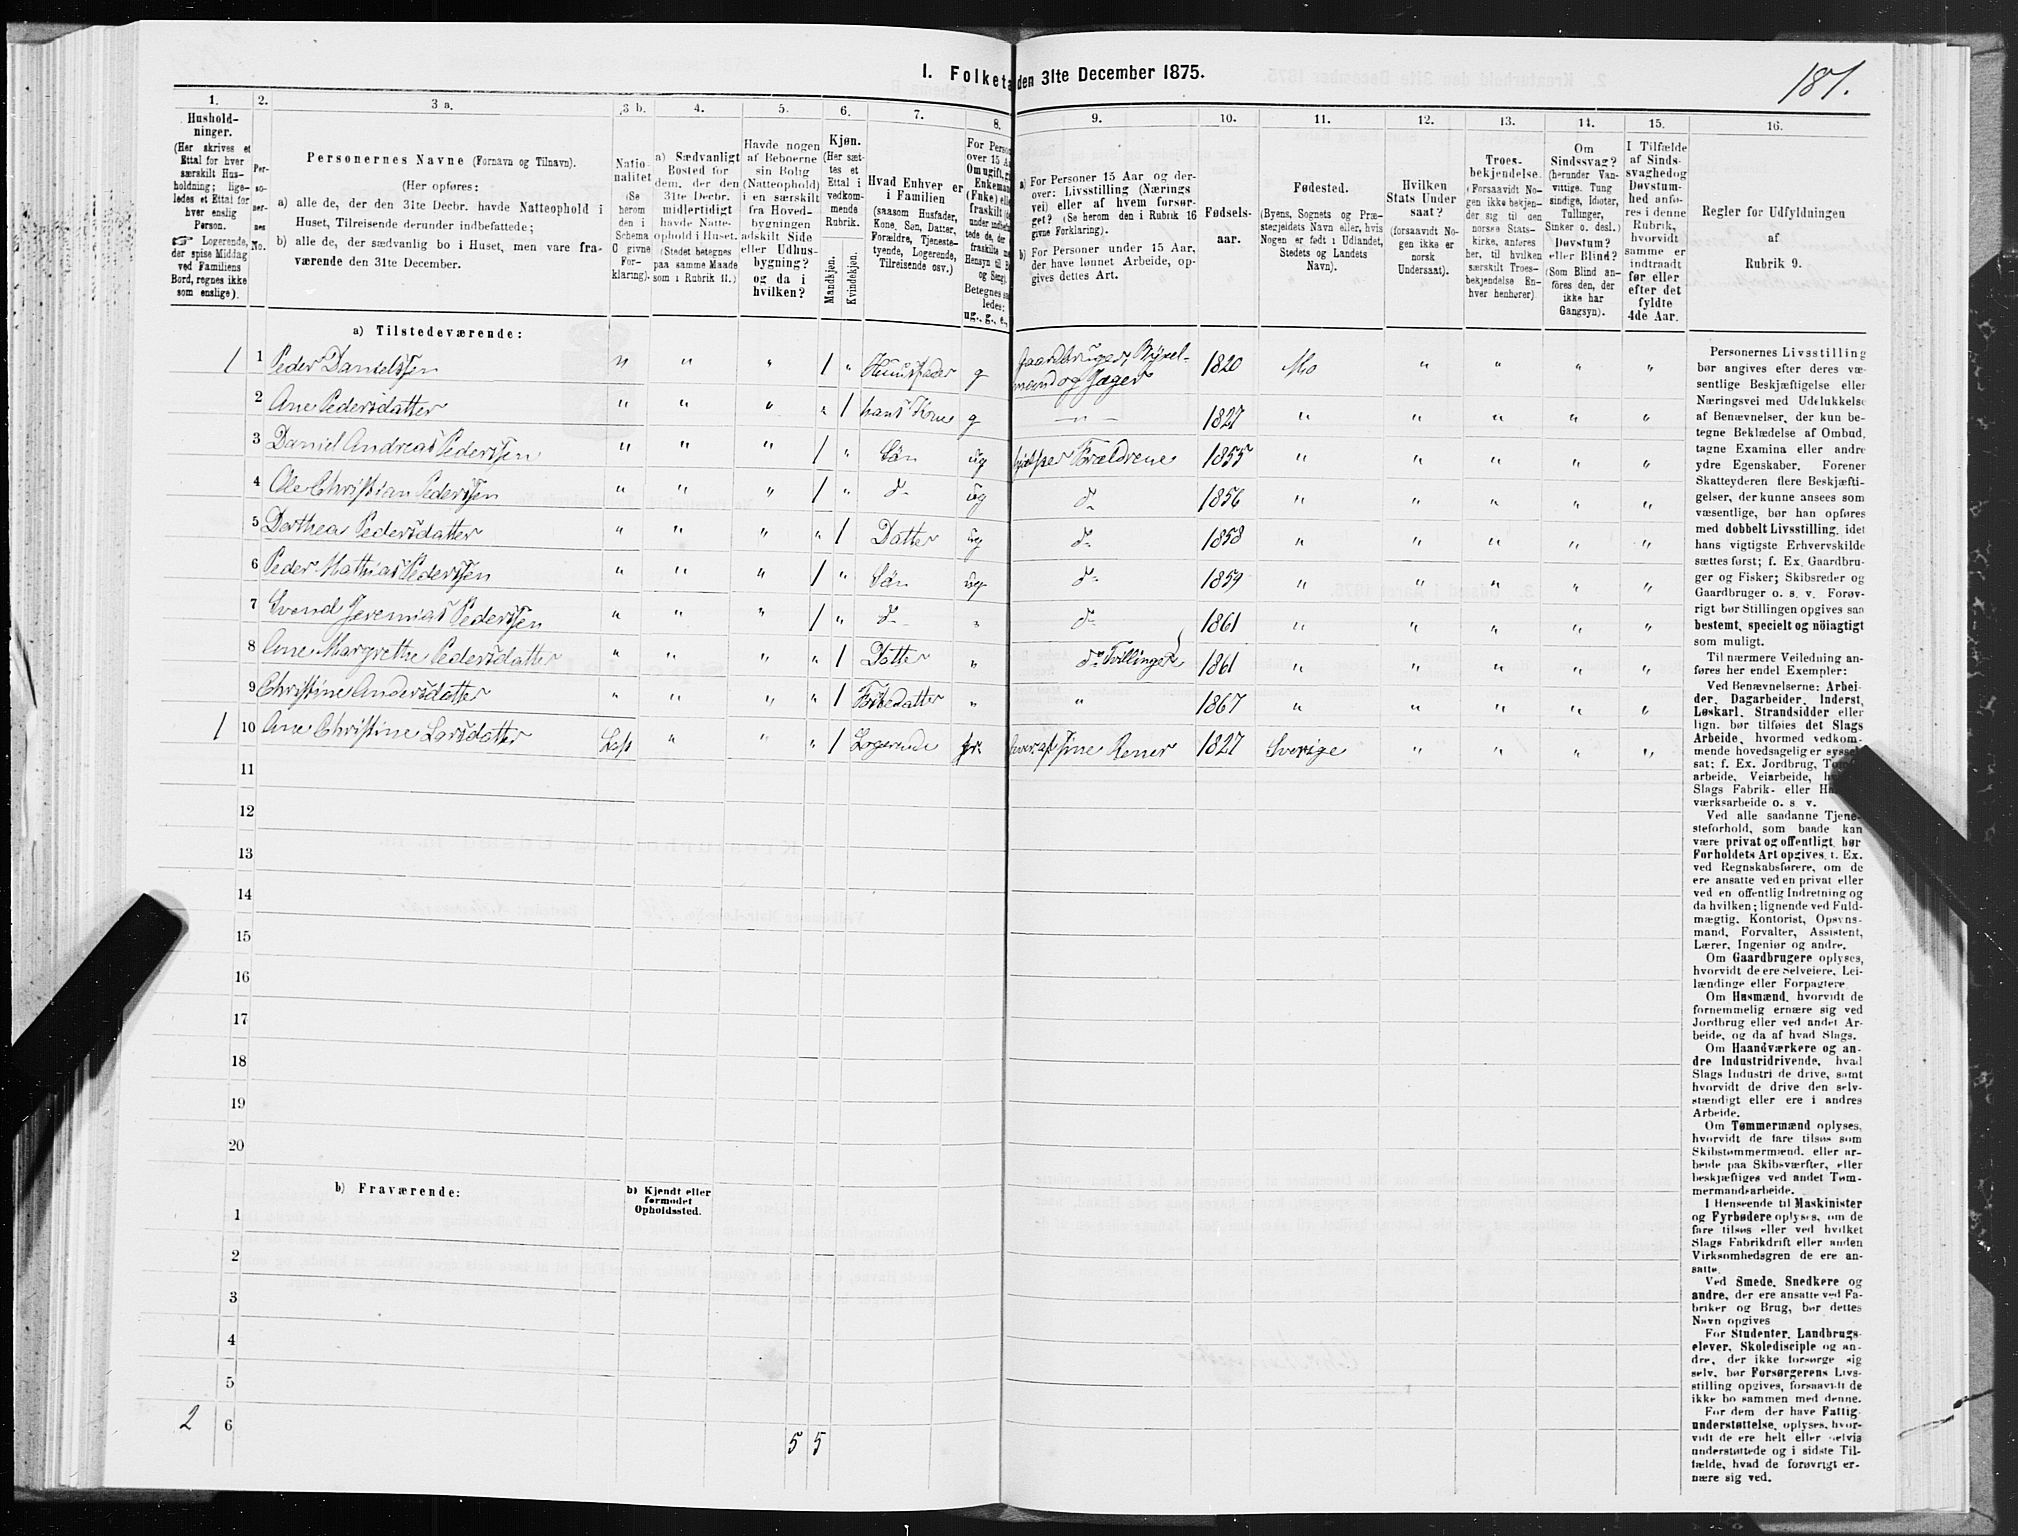 I. Folketæ den 31te December 1875.
181.
1.
Hushold-
ninger.
(Her skrives et
Ettal for hver
særskilt Hus-
holdning; lige-
ledes et Ettal for
hver enslig
Person.
Logerende,
der spise Middag
ved Familiens
Bord, regnes ikke
som enslige).
2.
Per-
so-
ner-
nes
No.
3 a.
Personernes Navne (Fornavn og Tilnavn).
(Her opføres:
a) alle de, der den 31te Decbr. havde Natteophold i
Huset, Tilreisende derunder indbefattede;
b) alle de, der sædvanlig bo i Huset, men vare fra-
værende den 31te December.
3 b.
Natio-
nalitet
(Se
herom
den i
Schema
C givne
For-
klaring).
4.
a) Sædvanligt
Bosted for
dem, der den
31te Decbr.
midlertidigt
havde Natte-
ophold i Huset.
(Stedet betegnes
paa samme Maade
som i Rubrik 11.)
5.
Havde nogen
af Beboerne
sin Bolig
(Natteophold)
i en særskilt
fra Hoved-
bygningen
adskilt Side
eller Udhus-
bygning?
og da i
hvilken?
6.
Kjøn.
(Her sæt-
tes et
Ettal i
vedkom-
mende
Rubrik.
Mandkjøn.
Kvindekjøn.
7.
Hvad Enhver er
i Familien
(saasom Husfader,
Kone, Søn, Datter,
Forældre, Tjeneste-
tyende, Logerende,
Tilreisende osv.)
8.
For Person
over 15 Aa
Om ugift, gi
Enkeman
(Enke) elle
fraskilt (
Betegnes sa
ledes:
ug., g., e.,
9.
a) For Personer 15 Aar og der-
over: Livsstilling (Nærings
vei) eller af hvem forsør-
get? (Se herom den i Rubrik 16
givne Forklaring).
b) For Personer under 15 Aar,
der have lønnet Arbeide, op-
gives dettes Art.
10.
Fødsels-
aar.
11.
Fødested.
(Byens, Sognets og Præ-
stegjeldets Navn eller, hvis
Nogen er født i Udlandet,
Stedets og Landets
Navn).
12.
Hvilken
Stats Under
saat?
(forsaavidt No-
gen ikke er
norsk
Undersaat).
13.
Troes-
bekjendelse.
(Forsaavidt No-
gen ikke bekjen-
der sig til den
norske Stats-
kirke, anføres
her, til hvilken
særskilt Troes-
bekjendelse En-
hver henhører).
14.
Om
Sindssvag?
(herunder Van-
vittige, Tung
sindige, Idioter,
Tullinger,
Sinker o. desl.)
Døvstum?
eller Blind?
(Som Blind an-
føres den, der
ikke har
Gangsyn).
15.
I Tilfælde
af Sinds-
svaghed og
Døvstum-
hed anfø-
res i denne
Rubrik,
hvorvidt
samme er
indtraadt
før eller
efter det
fyldte
4de Aar.
16.
Regler for Udfyldningen
af
Rubrik 9.
a) Tilstedeværende:
1 1 Peder Danielssen n " " 1 " Huusfader g Gaardbruger, Bøxel-
mand og Jæger 1820 Mo " " " "
2 Ane Pedersdatter " " " " 1 hans Kone g — " — 1827 " " " " "
3 Daniel Andreas Pederssen " " " 1 " Søn ug hjælper Forældrene 1855 " " " " "
4 Ole Christian Pederssen " " " 1 " do ug do 1856 " " " " "
5 Dorthea Pedersdatter " " " " 1 Datter ug do 1858 " " " " "
6 Peder Mathias Pederssen " " " 1 " Søn ug do 1859 " " " " "
7 Svend Jeremias Pederssen " " " 1 " do " do 1861 " " " " "
8 Ane Margrethe Pedersdatter " " " " 1 Datter " do Tvillinger 1861 " " " " "
9 Christine Andersdatter " " " " 1 " " 1867 " " " " "
1 10 Ane Christine Larsdatter Lap " " " 1 Logerende fr. sine Rener 1827 Sverige " " " "
11
12
13
14
15
16
17
18
19
20
b) Fraværende:
b) Kjendt eller
formodet
Opholdssted.
1
2
3
4
5
2 6
5 5
Personernes Livsstilling
bør angives efter deres væ-
sentlige Beskjæftigelse eller
Næringsvei med Udelukkelse
af Benævnelser, der kun be-
tegne Beklædelse af Ombud,
tagne Examina eller andre
ydre Egenskaber. Forener
Skatteyderen flere Beskjæfti-
gelser, der kunne ansees som
væsentlige, bør han opføres
med dobbelt Livsstilling, idet
hans vigtigste Erhvervskilde
sættes først; f. Ex. Gaardbru-
ger og Fisker; Skibsreder og
Gaardbruger o. s. v. Forøv-
rigt bør Stillingen opgives saa
bestemt, specielt og nöiagtigt
som muligt.
Til nærmere Veiledning an-
føres her endel Exempler:
Ved Benævnelserne: Arbei-
der, Dagarbeider, Inderst,
Løskarl, Strandsidder eller
lign. bør tilføies det Slags
Arbeide, hvormed vedkom-
mende hovedsagelig er syssel-
sat; f. Ex. Jordbrug, Tom
arbeide, Veiarbeide, h
Slags Fabrik- eller Ha
værksarbeide o. s. v.
Ved alle saadanne Tjene-
steforhold, som baade kan
være privat og offentligt, bør
Forholdets Art opgives, f. Ex.
ved Regnskabsførere, om de
ere ansatte ved en privat eller
ved en offentlig Indretning og
da hvilken; lignende ved Fuld-
mægtig, Kontorist, Opsyns-
mand, Forvalter, Assistent,
Lærer, Ingeniør og andre.
Om Gaardbrugere oplyses,
hvorvidt de ere Selveiere, Lei-
lændinge eller Forpagtere.
Om Husmænd, hvorvidt de
fornemmelig ernære sig ved
Jordbrug eller ved andet Ar-
beide, og da af hvad Slags.
Om Haandværkere og an-
dre Industridrivende, hvad
Slags Industri de drive, samt
hvorvidt de drive den selv-
stændigt eller ere i andres
Arbeide.
Om Tømmermænd oplyses,
hvorvidt de fare tilsøs som
Skibstømmermænd, eller ar-
beide paa Skibsværfter, eller
beskjæftiges ved andet Tøm-
mermandsarbeide.
I Henseende til Maskinister
og Fyrbødere oplyses, om de
fare tilsøs eller ved hvilket
Slags Fabrikdrift eller anden
Virksomhedsgren de ere an-
satte.
Ved Smede, Snedkere og
andre, der ere ansatte ved Fa-
briker og Brug, bør dettes
Navn opgives
For Studenter, Landbrugs-
elever, Skoledisciple og an-
dre, der ikke forsørge sig
selv, bør Forsørgerens Livs-
stilling opgives, forsaavidt de
ikke bo sammen med denne.
For dem, der have Fattig-
understøttelse, oplyses, hvor-
vidt de ere helt eller delvis
understøttede og i sidste Til-
fælde, hvad de forøvrigt er-
nære sig ved.